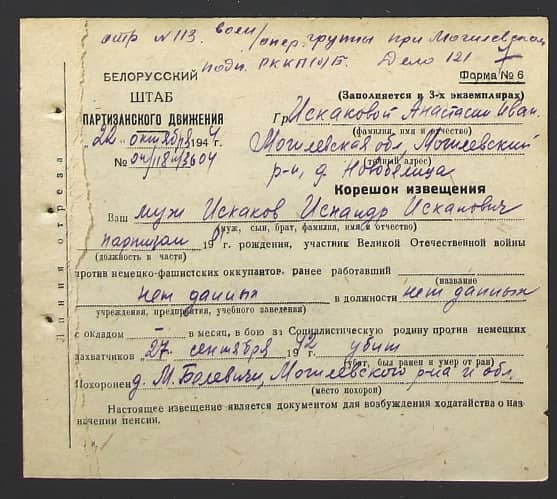 отр N 113. воен/опер. группы при Могилевском
подп. РККП(б)Б. Дело 121
БЕЛОРУССКИЙ
ШТАБ
ПАРТИЗАНСКОГО ДВИЖЕНИЯ
„20“ октября 1944 г.
№ 04/18/3604
Форма № 6
(Заполняется в 3-х экземплярах)
Гр. Искаковой Анастасии Иван.
(фамилия, имя и отчество)
Могилевская обл, Могилевский
(точный адрес)
р-н, д. Новобелица
Корешок извещения
Ваш муж Искаков Искандр Искапович
(муж, сын, брат, фамилия, имя и отчество)
партизан 19 г. рождения, участник Великой Отечественной войны
(должность в части)
против немецко-фашистских оккупантов ранее работавший
(название
нет данных в должности нет данных
учреждения, предприятия, учебного заведения)
с окладом — в месяц, в бою за Социалистическую родину против немецких
захватчиков „27“ сентября 1942 убит
(убит, был ранен и умер от ран)
Похоронен д. М. Болевичи, Могилевского р-на и обл.
(место похорон)
Настоящее извещение является документом для возбуждения ходатайства о наз-
начении пенсии.
Линия отреза